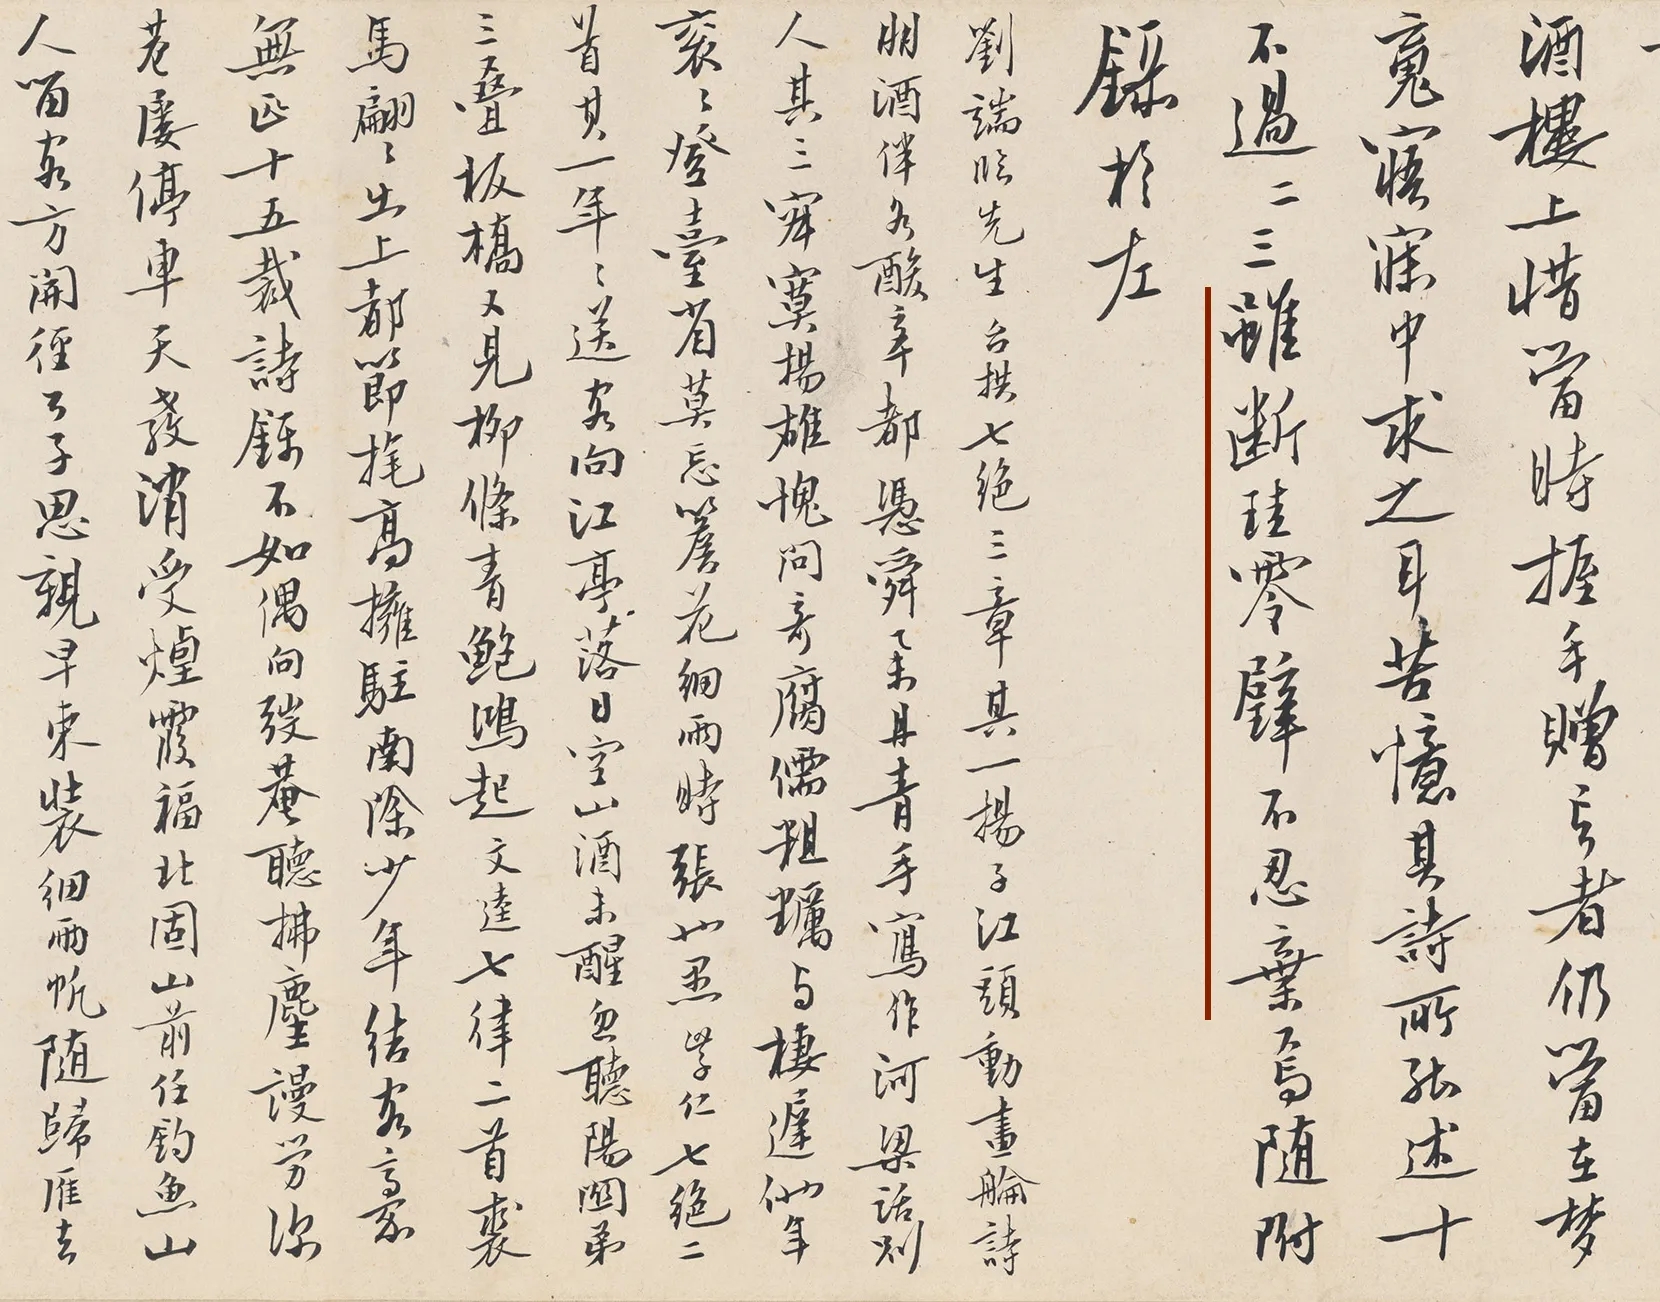 酒樓上惜當時握手贈言者仍留在夢
寬寤寐中求之耳苦憶其詩所能述十
不過二三雖斷珪零璧不忍棄焉隨附
錄於左
劉端臨先生台拱七絕三章其一揚子江頭動畫艫詩
朋酒伴各酸辛都憑舜耳青手寫作河梁話別
人其三寂寞揚雄愧問奇腐儒粗糲与棲遲他年
袞〻登臺省莫忘簷花細雨時張學仁七絕二
首其一年〻送客向江亭落日空山酒未醒忽聽陽關弟
三疊板橋又見柳條青鮑鴻起文逵七律二首裘
馬翩〻出上都節旄高擁駐南除少年結客高
無匹十五裁詩錄不如偶向發菴聽拂麈謾勞深
巷屢停車天教消受煙霞福北固山前任釣魚山
人留客方開徑公子思親早束裝細雨帆隨歸雁去